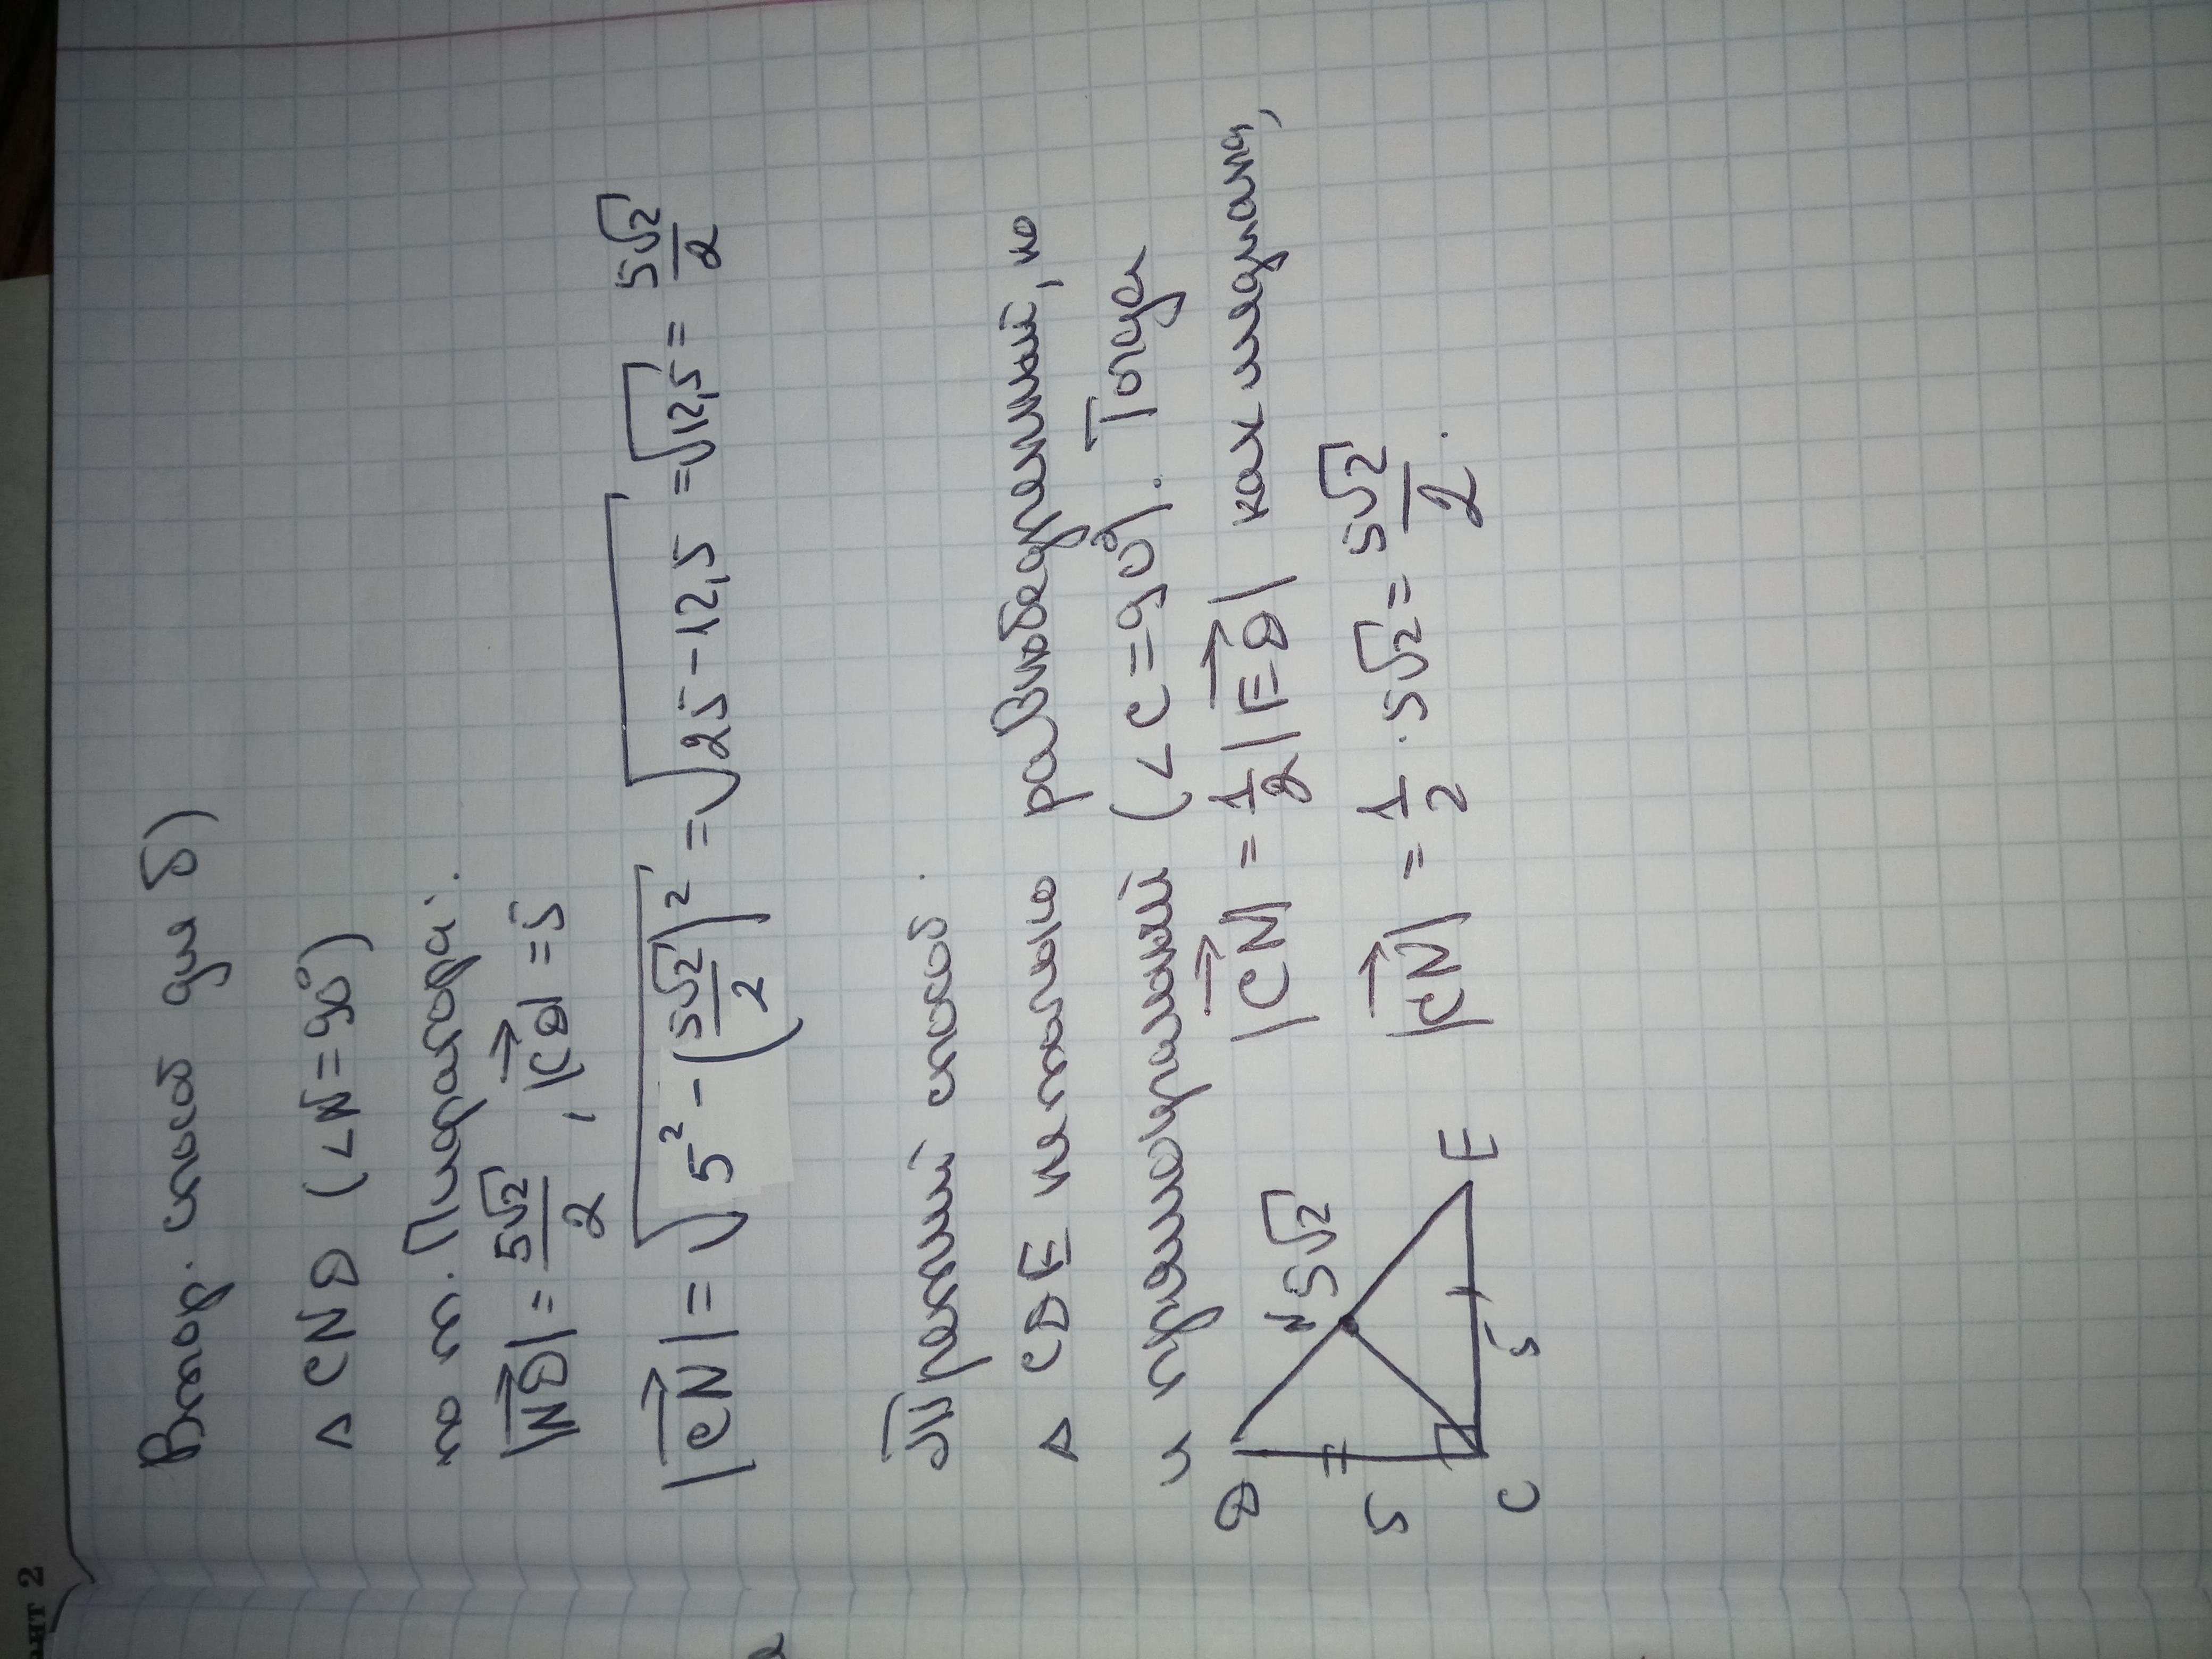 Втор. способ для б)
Δ CND (∠N=90°)
по т. Пифагора:
|ND| = 5√2/2, |CD| = 5
|CN| = √(5² - (5√2/2)²) = √(25-12,5) = √12,5 = 5√2/2
Третий способ.
Δ CDE не только равнобедренный, но
и прямоугольный (∠C=90°). Тогда
|CN| = 1/2 |ED| как медиана,
|CN| = 1/2 · 5√2 = 5√2/2.
D N 5√2 E
5 5
C
ант 2